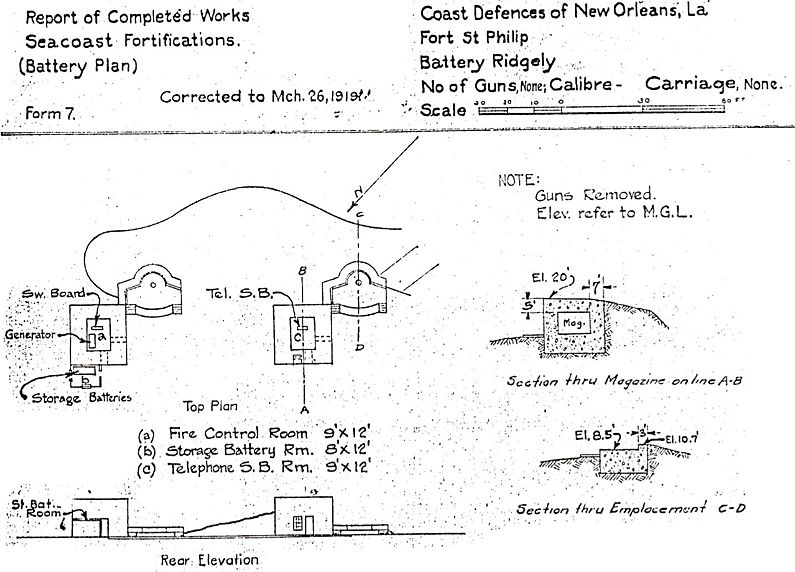 Report of Completed Works
Seacoast Fortifications.
(Battery Plan)
Corrected to Mch. 26, 1919.
Form 7.
Coast Defences of New Orleans, La
Fort St Philip
Battery Ridgely
No of Guns, None; Calibre - Carriage, None.
Scale 30 20 10 0 30 60 FT
NOTE:
Guns Removed.
Elev. refer to M.G.L.
N
C
B
Sw. Board
Tel. S.B.
Generator
a
C
D
b
Storage Batteries
A
Top Plan
(a) Fire Control Room 9'X12'
(b) Storage Battery Rm. 8'X12'
(c) Telephone S.B. Rm. 9'X12'
El. 20'
7'
5'
Mag.
Section thru Magazine on line A-B
El. 8.5'
3'
El. 10.7'
Section thru Emplacement C-D
St. Bat.
Room
Rear Elevation